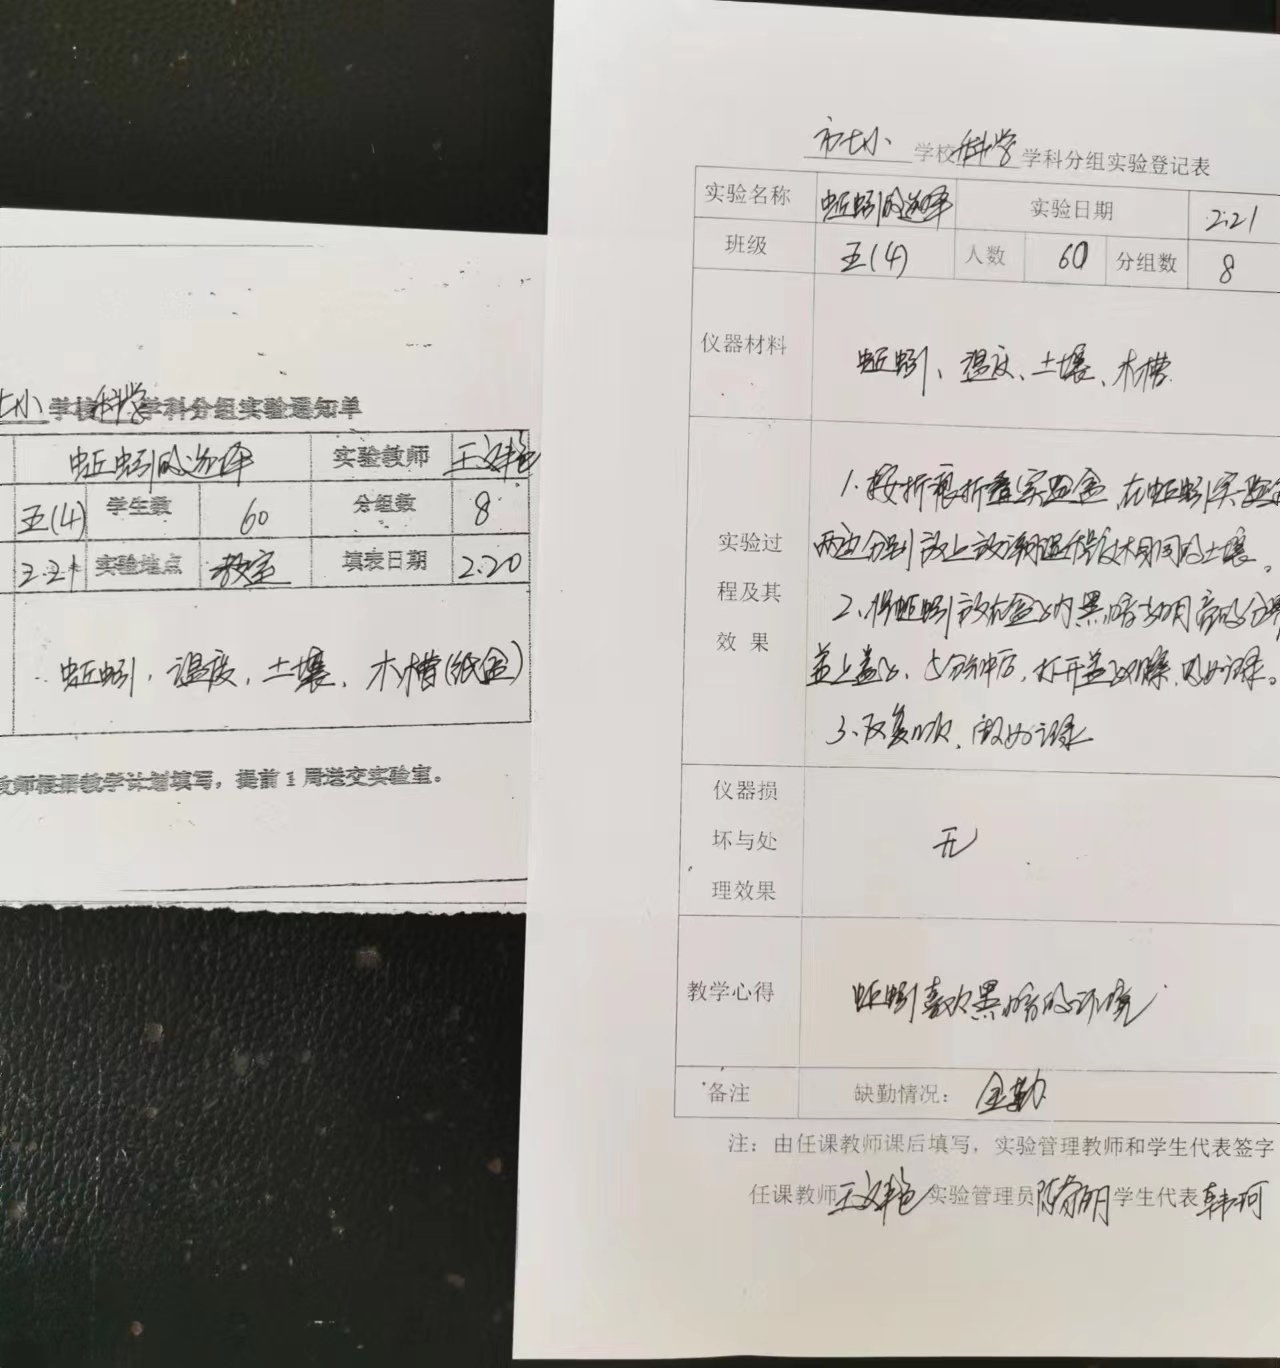 七小学校科学学科分组实验通知单
蚯蚓的选择 实验教师 王文艳
五(4) 学生数 60 分组数 8
2.21 实验地点 教室 填表日期 2.20
蚯蚓、温度、土壤、木槽(纸盒)
教师根据教学计划填写，提前1周送交实验室。
市七小学校科学学科分组实验登记表
实验名称 蚯蚓的选择 实验日期 2.21
班级 五(4) 人数 60 分组数 8
仪器材料 蚯蚓、温度、土壤、木槽
实验过程及其效果
1.按折痕折叠实验盒,在蚯蚓实验
两边分别放上
相同的土壤。
2.将蚯蚓放在盒子内黑暗与明亮的分界
盖上盖子,5分钟后,打开盖子观察,做好记录。
3.反复几次,做好记录
仪器损坏与处理效果 无
教学心得 蚯蚓喜欢黑暗的环境
备注 缺勤情况： 全勤
注：由任课教师课后填写，实验管理教师和学生代表签字
任课教师王文艳实验管理员 学生代表韩珂